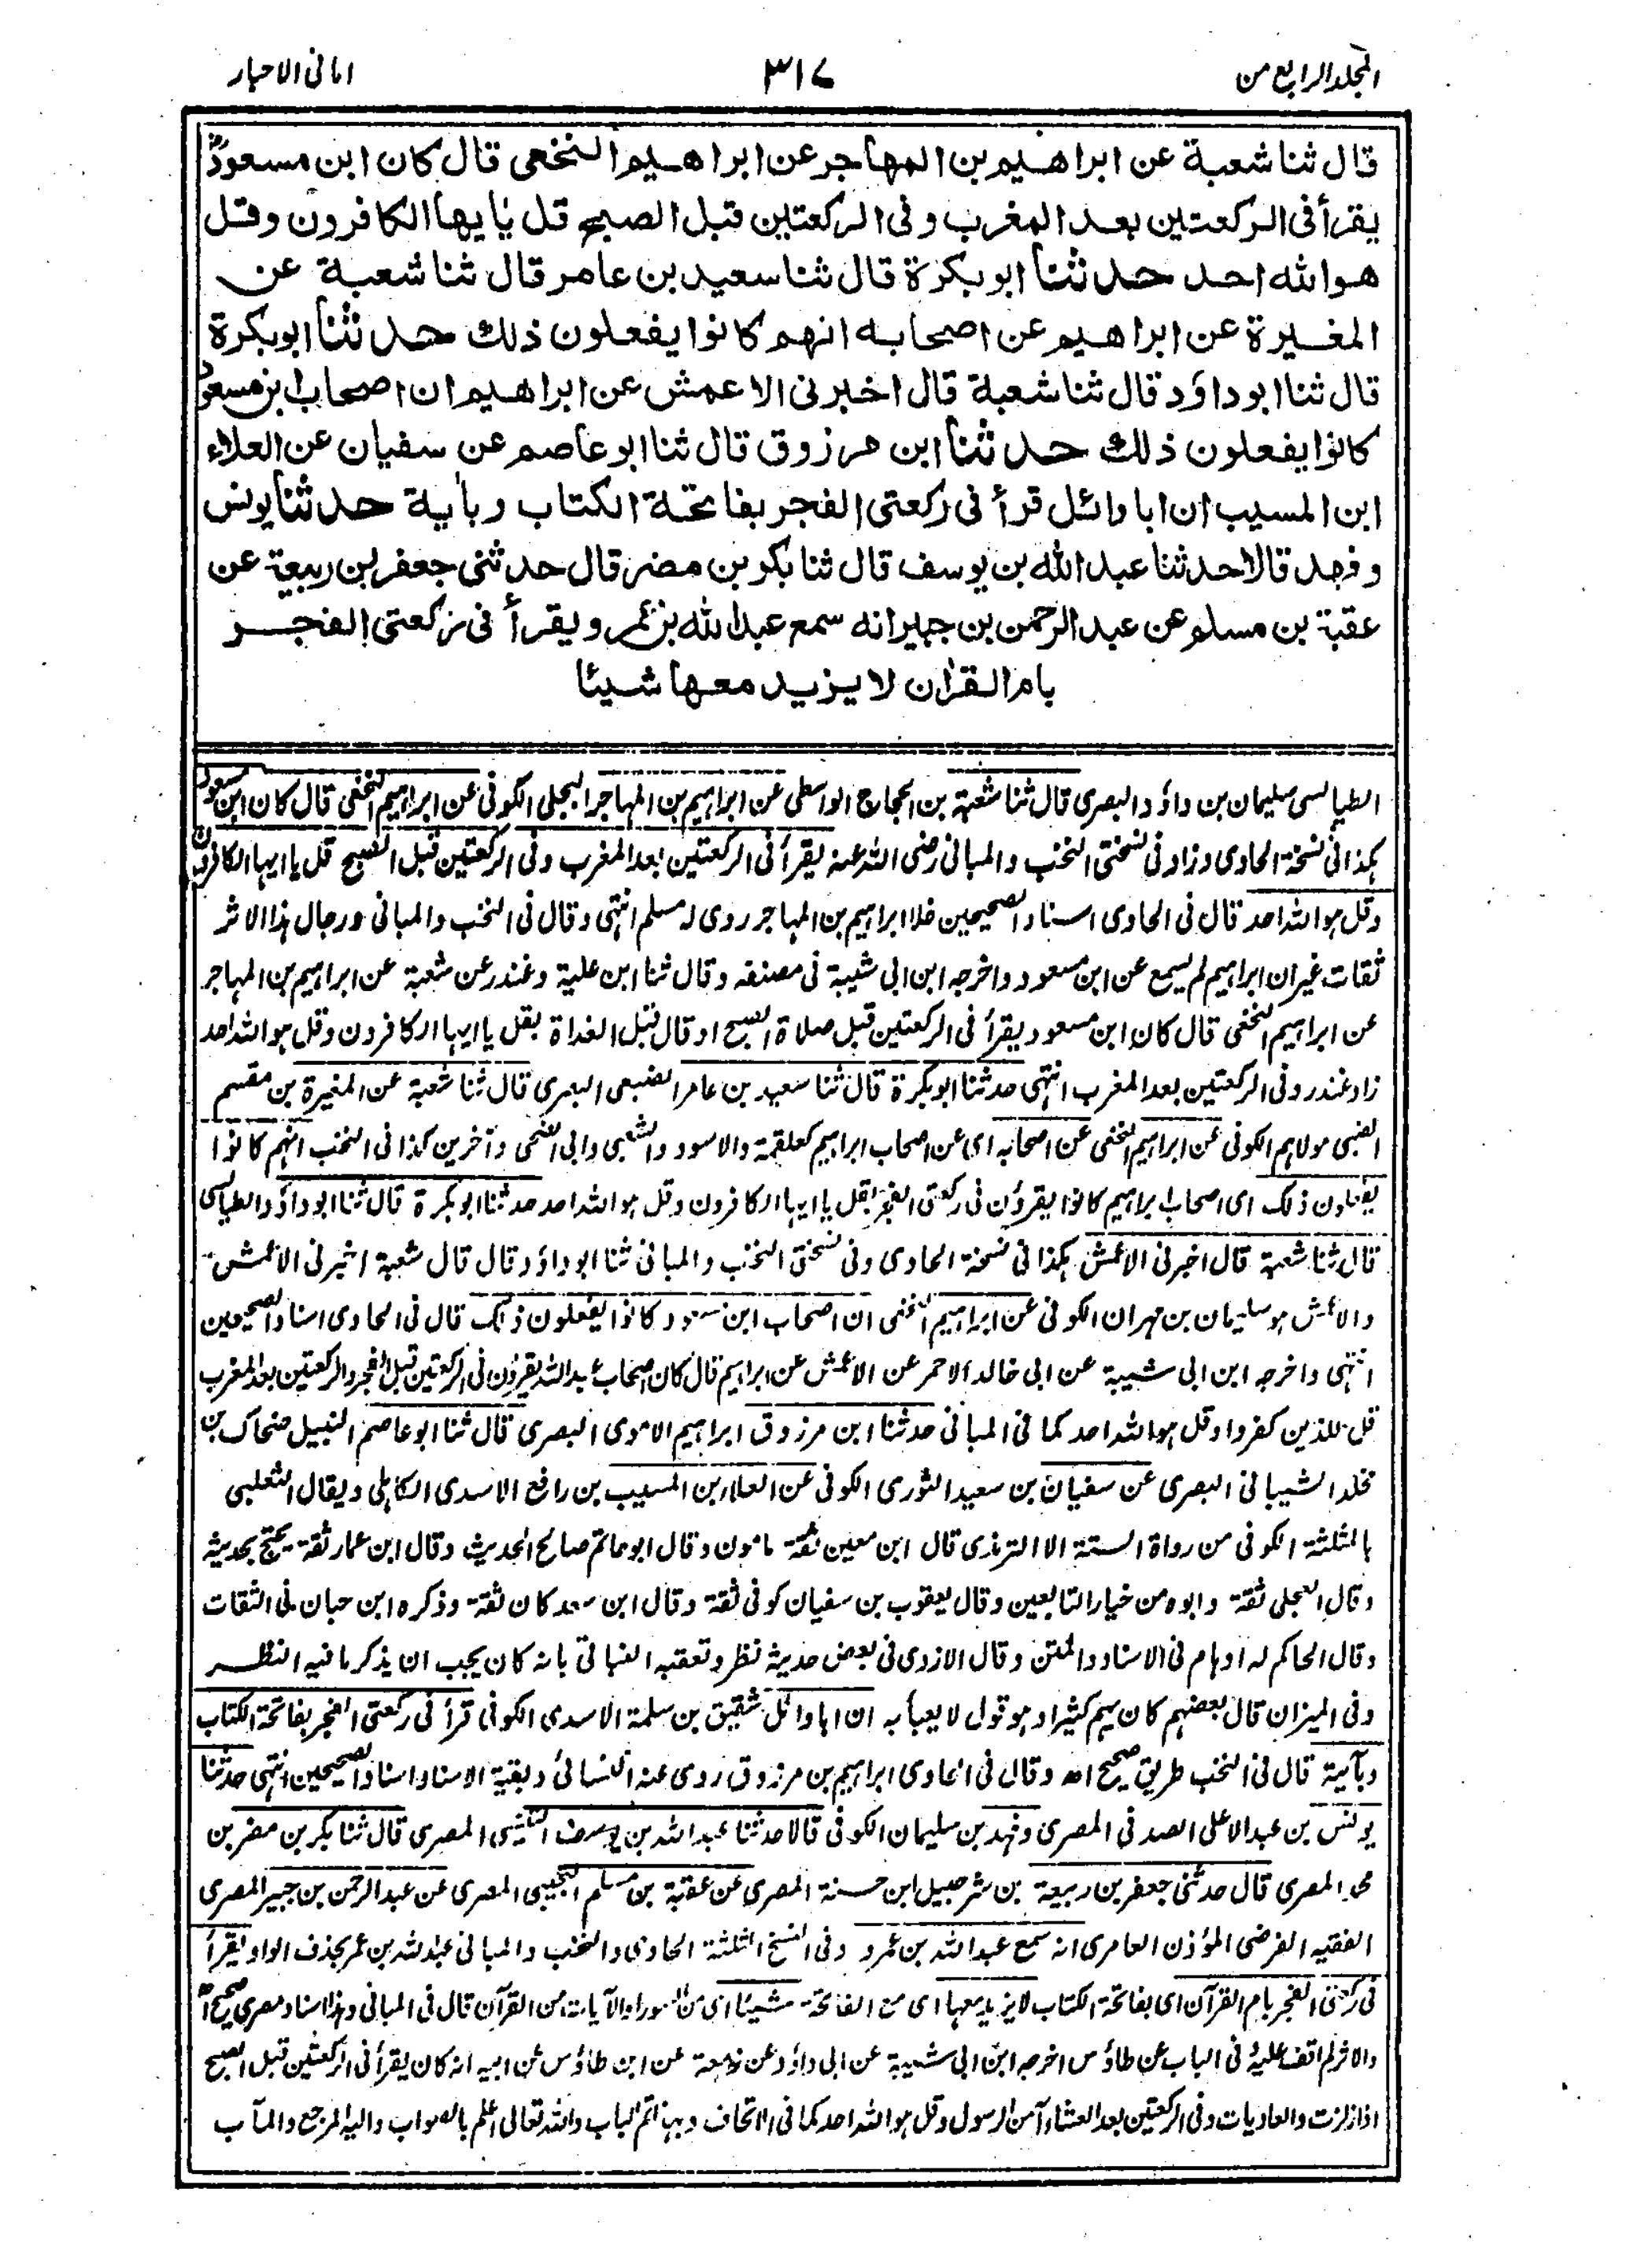 المجلد الرابع من
٣١٧
امانی الاحبار
قال ثنا شعبة عن ابراهيم بن المهاجر عن ابراهيم النخعی قال كان ابن مسعودؓ
يقرأ فی الركعتين بعد المغرب و فی الركعتين قبل الصبح قل يٰايها الكافرون وقل
هو الله احد حدثنا ابو بكرة قال ثنا سعيد بن عامر قال ثنا شعبة عن
المغيرة عن ابراهيم عن اصحابه انهم كانوا يفعلون ذلك حدثنا ابو بكرة
قال ثنا ابو داؤد قال ثنا شعبة قال اخبرنی الاعمش عن ابراهيم ان اصحاب ابن مسعود
كانوا يفعلون ذلك حدثنا ابن مرزوق قال ثنا ابو عاصم عن سفيان عن العلاء
ابن المسيب ان ابا وائل قرأ فی ركعتی الفجر بفاتحة الكتاب و بأية حدثنا يونس
و فهد قالا حدثنا عبد الله بن يوسف قال ثنا بكر بن مضر قال حدثنی جعفر بن ربيعة عن
عقبة بن مسلم عن عبد الرحمٰن بن جبير انه سمع عبد الله بن عمرو يقرأ فی ركعتی الفجر
بام القراٰن لا يزيد معها شيئا
الطيالسی سليمان بن داؤد البصری قال ثنا شعبة بن الحجاج الواسطی عن ابراہیم بن المہاجر البجلی الکوفی عن ابراہیم النخعی قال کان ابن مسعود
ہکذا فی نسخة الحاوی وزاد فی نسختی النخب والمبانی رضی اللہ عنہ یقرأ فی الرکعتین بعد المغرب وفی الرکعتین قبل الصبح قل یا ایہا الکافرون
وقل ہو اللہ احد قال فی الحاوی اسناد الصحیحین خلا ابراہیم بن المہاجر روی لہ مسلم انتہی وقال فی النخب والمبانی ورجال ہذا الاثر
ثقات غیر ان ابراہیم لم یسمع عن ابن مسعود واخرجہ ابن ابی شیبة فی مصنفہ وقال ثنا ابن علیة وغندر عن شعبة عن ابراہیم بن المہاجر
عن ابراہیم النخعی قال کان ابن مسعود یقرأ فی الرکعتین قبل صلاة الصبح او قال قبل الغداة بقل یا ایہا الکافرون وقل ہو اللہ احد
زاد غندر وفی الرکعتین بعد المغرب انتہی حدثنا ابو بکرة قال ثنا سعید بن عامر الضبعی البصری قال ثنا شعبة عن المغیرة بن مقسم
الضبی مولاہم الکوفی عن ابراہیم النخعی عن اصحابہ ای عن اصحاب ابراہیم کعلقمة والاسود والشعبی وابی الضحی وآخرین کذا فی النخب انہم کانوا
یفعلون ذلک ای اصحاب ابراہیم کانوا یقرؤن فی رکعتی الفجر بقل یا ایہا الکافرون وقل ہو اللہ احد حدثنا ابو بکرة قال ثنا ابو داؤد الطیالسی
قال ثنا شعبة قال اخبرنی الاعمش ہکذا فی نسخة الحاوی وفی نسختی النخب والمبانی ثنا ابو داؤد قال قال شعبة اخبرنی الاعمش
والاعمش ہو سلیمان بن مہران الکوفی عن ابراہیم النخعی ان اصحاب ابن مسعود کانوا یفعلون ذلک قال فی الحاوی اسناد الصحیحین
انتہی واخرجہ ابن ابی شیبة عن ابی خالد الاحمر عن الاعمش عن ابراہیم قال کان اصحاب عبد اللہ یقرؤن فی الرکعتین قبل الفجر والرکعتین بعد المغرب
قل للذین کفروا وقل ہو اللہ احد کما فی المبانی حدثنا ابن مرزوق ابراہیم الاموی البصری قال ثنا ابو عاصم النبیل ضحاک بن
مخلد الشیبانی البصری عن سفیان بن سعید الثوری الکوفی عن العلاء بن المسیب بن رافع الاسدی الکاہلی ویقال الثعلبی
بالمثلثة الکوفی من رواة الستة الا الترمذی قال ابن معین ثقة مامون وقال ابو حاتم صالح الحدیث وقال ابن عمار ثقة یحتج بحدیثہ
وقال العجلی ثقة وابوہ من خیار التابعین وقال یعقوب بن سفیان کوفی ثقة وقال ابن سعد کان ثقة وذکرہ ابن حبان فی الثقات
وقال الحاکم لہ اوہام فی الاسناد والمتن وقال الازدی فی بعض حدیثہ نظر وتعقبہ النباتی بانہ کان یجب ان یذکر ما فیہ النظر
وفی المیزان قال بعضہم کان یہم کثیرا وہو قول لا یعبأ بہ ان ابا وائل شقیق بن سلمة الاسدی الکوفی قرأ فی رکعتی الفجر بفاتحة الکتاب
وبآیة قال فی النخب طریق صحیح اھ وقال فی الحاوی ابراہیم بن مرزوق روی عنہ النسائی وبقیة الاسناد اسناد الصحیحین انتہی حدثنا
یونس بن عبد الاعلی الصدفی المصری وفہد بن سلیمان الکوفی قالا حدثنا عبد اللہ بن یوسف التنیسی المصری قال ثنا بکر بن مضر بن
محمد المصری قال حدثنی جعفر بن ربیعة بن شرحبیل ابن حسنة المصری عن عقبة بن مسلم التجیبی المصری عن عبد الرحمن بن جبیر المصری
الفقیہ الفرضی المؤذن العامری انہ سمع عبد اللہ بن عمرو وفی النسخ الثلثة الحاوی والنخب والمبانی عبد اللہ بن عمر بحذف الواو یقرأ
فی رکعتی الفجر بام القرآن ای بفاتحة الکتاب لا یزید معہا ای مع الفاتحة شیئا ای من السور او الآیات من القرآن قال فی المبانی وہذا اسناد مصری صحیح اھ
والاثر لم اقف علیہ فی الباب عن طاؤس اخرجہ ابن ابی شیبة عن ابی داؤد عن زمعة عن ابن طاؤس عن ابیہ انہ کان یقرأ فی الرکعتین قبل الصبح
اذا زلزلت والعادیات وفی الرکعتین بعد العشاء آمن الرسول وقل ہو اللہ احد کما فی الاتحاف وبہذا تم الباب واللہ تعالی اعلم بالصواب والیہ المرجع والمآب